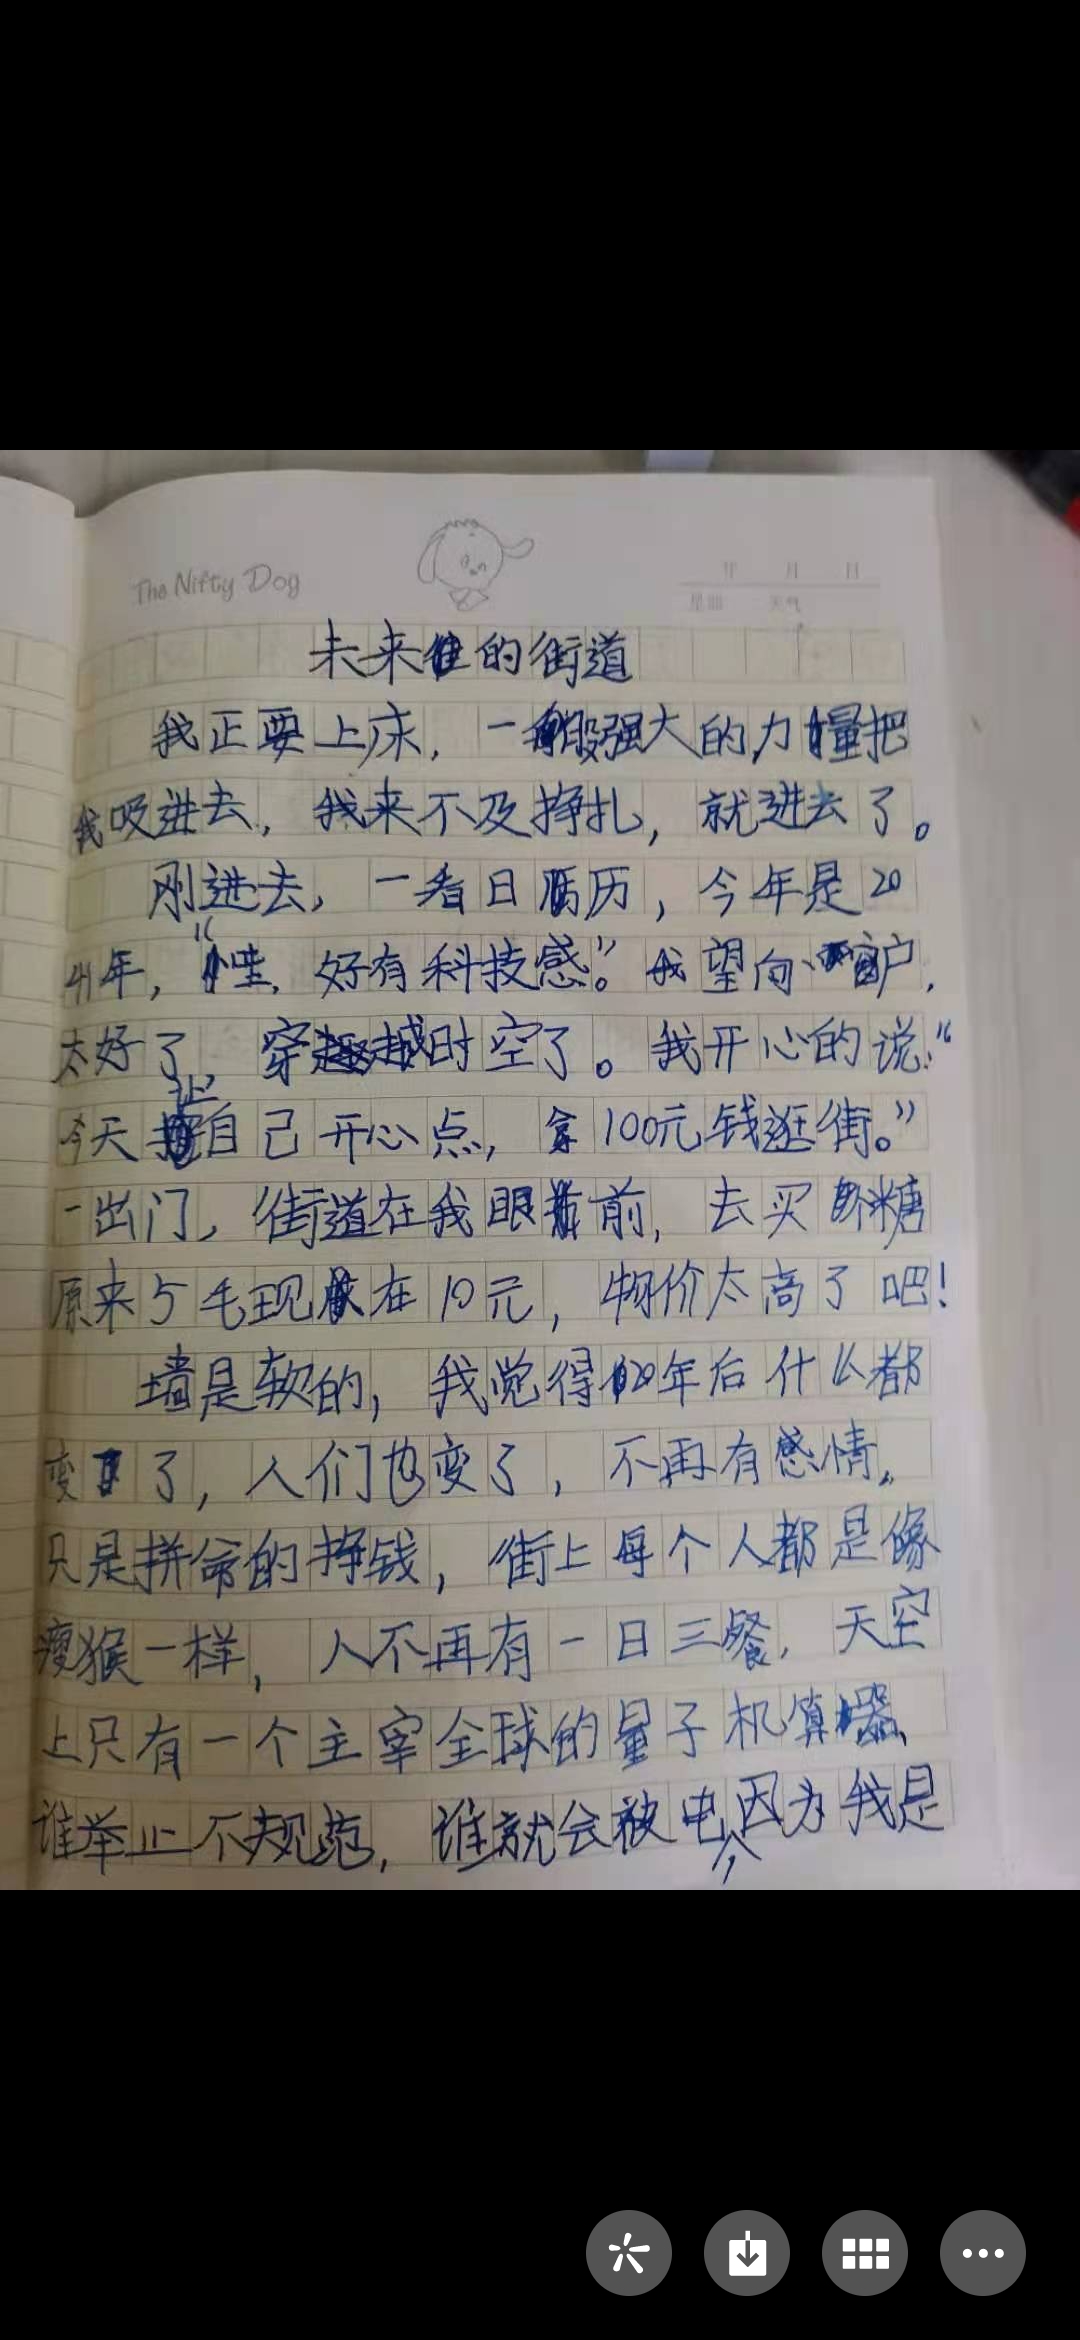 The Nifty Dog
年 月 日
星期 天气
未来的街道
我正要上床，一股强大的力量把
我吸进去，我来不及挣扎，就进去了。
刚进去，一看日历，今年是20
41年，“哇，好有科技感。”我望向窗户，
太好了，穿越时空了。我开心的说：“
今天让自己开心点，拿100元钱逛街。”
一出门，街道在我眼前，去买软糖
原来5毛现在10元，物价太高了吧！
墙是软的，我觉得20年后什么都
变了，人们也变了，不再有感情。
只是拼命的挣钱，街上每个人都是像
瘦猴一样，人不再有一日三餐，天空
上只有一个主宰全球的量子机算器，
谁举止不规范，谁就会被电，因为我是